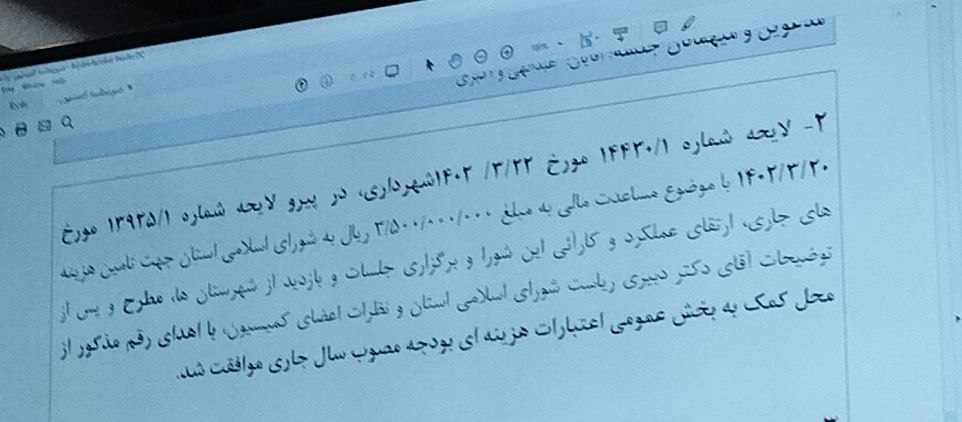 مدعوین و میهمانان جلسه: آقایان
۲- لایحه شماره ۱۴۴۳۰/۱ مورخ ۱۴۰۲/۳/۲۲شهرداری، در پیرو لایحه شماره ۱۳۹۲۵/۱ مورخ
۱۴۰۲/۳/۲۰ با موضوع مساعدت مالی به مبلغ ۳/۵۰۰/۰۰۰/۰۰۰ ریال به شورای اسلامی استان جهت تامین هزینه
های جاری، ارتقای عملکرد و کارآئی این شورا و برگزاری جلسات و بازدید از شهرستان ها، مطرح و پس از
توضیحات آقای دکتر دبیری ریاست شورای اسلامی استان و نظرات اعضای کمیسیون، با اهدای رقم مذکور از
محل کمک به بخش عمومی اعتبارات هزینه ای بودجه مصوب سال جاری موافقت شد.